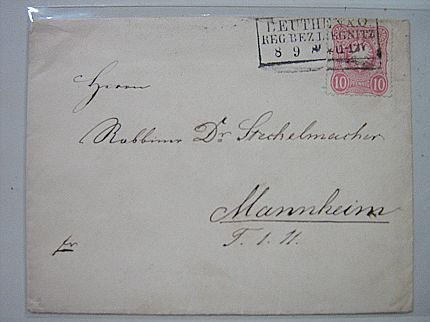 BEUTHEN A.O.
REG.BEZ.LIEGNITZ
8 9 11-12V
10 PFENNIG 10
Herrn
Rabbiner Dr. Steckelmacher
Mannheim
T. 1. 11.
fr